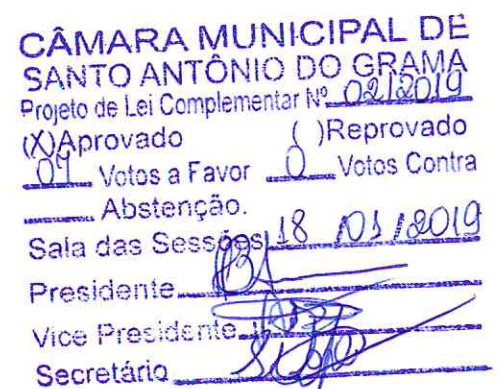 CÂMARA MUNICIPAL DE
SANTO ANTÔNIO DO GRAMA
Projeto de Lei Complementar Nº 02/2019
(X)Aprovado ( )Reprovado
Votos a Favor 0 Votos Contra
Abstenção.
Sala das Sessões 18 /01/2019
Presidente
Vice Presidente
Secretário